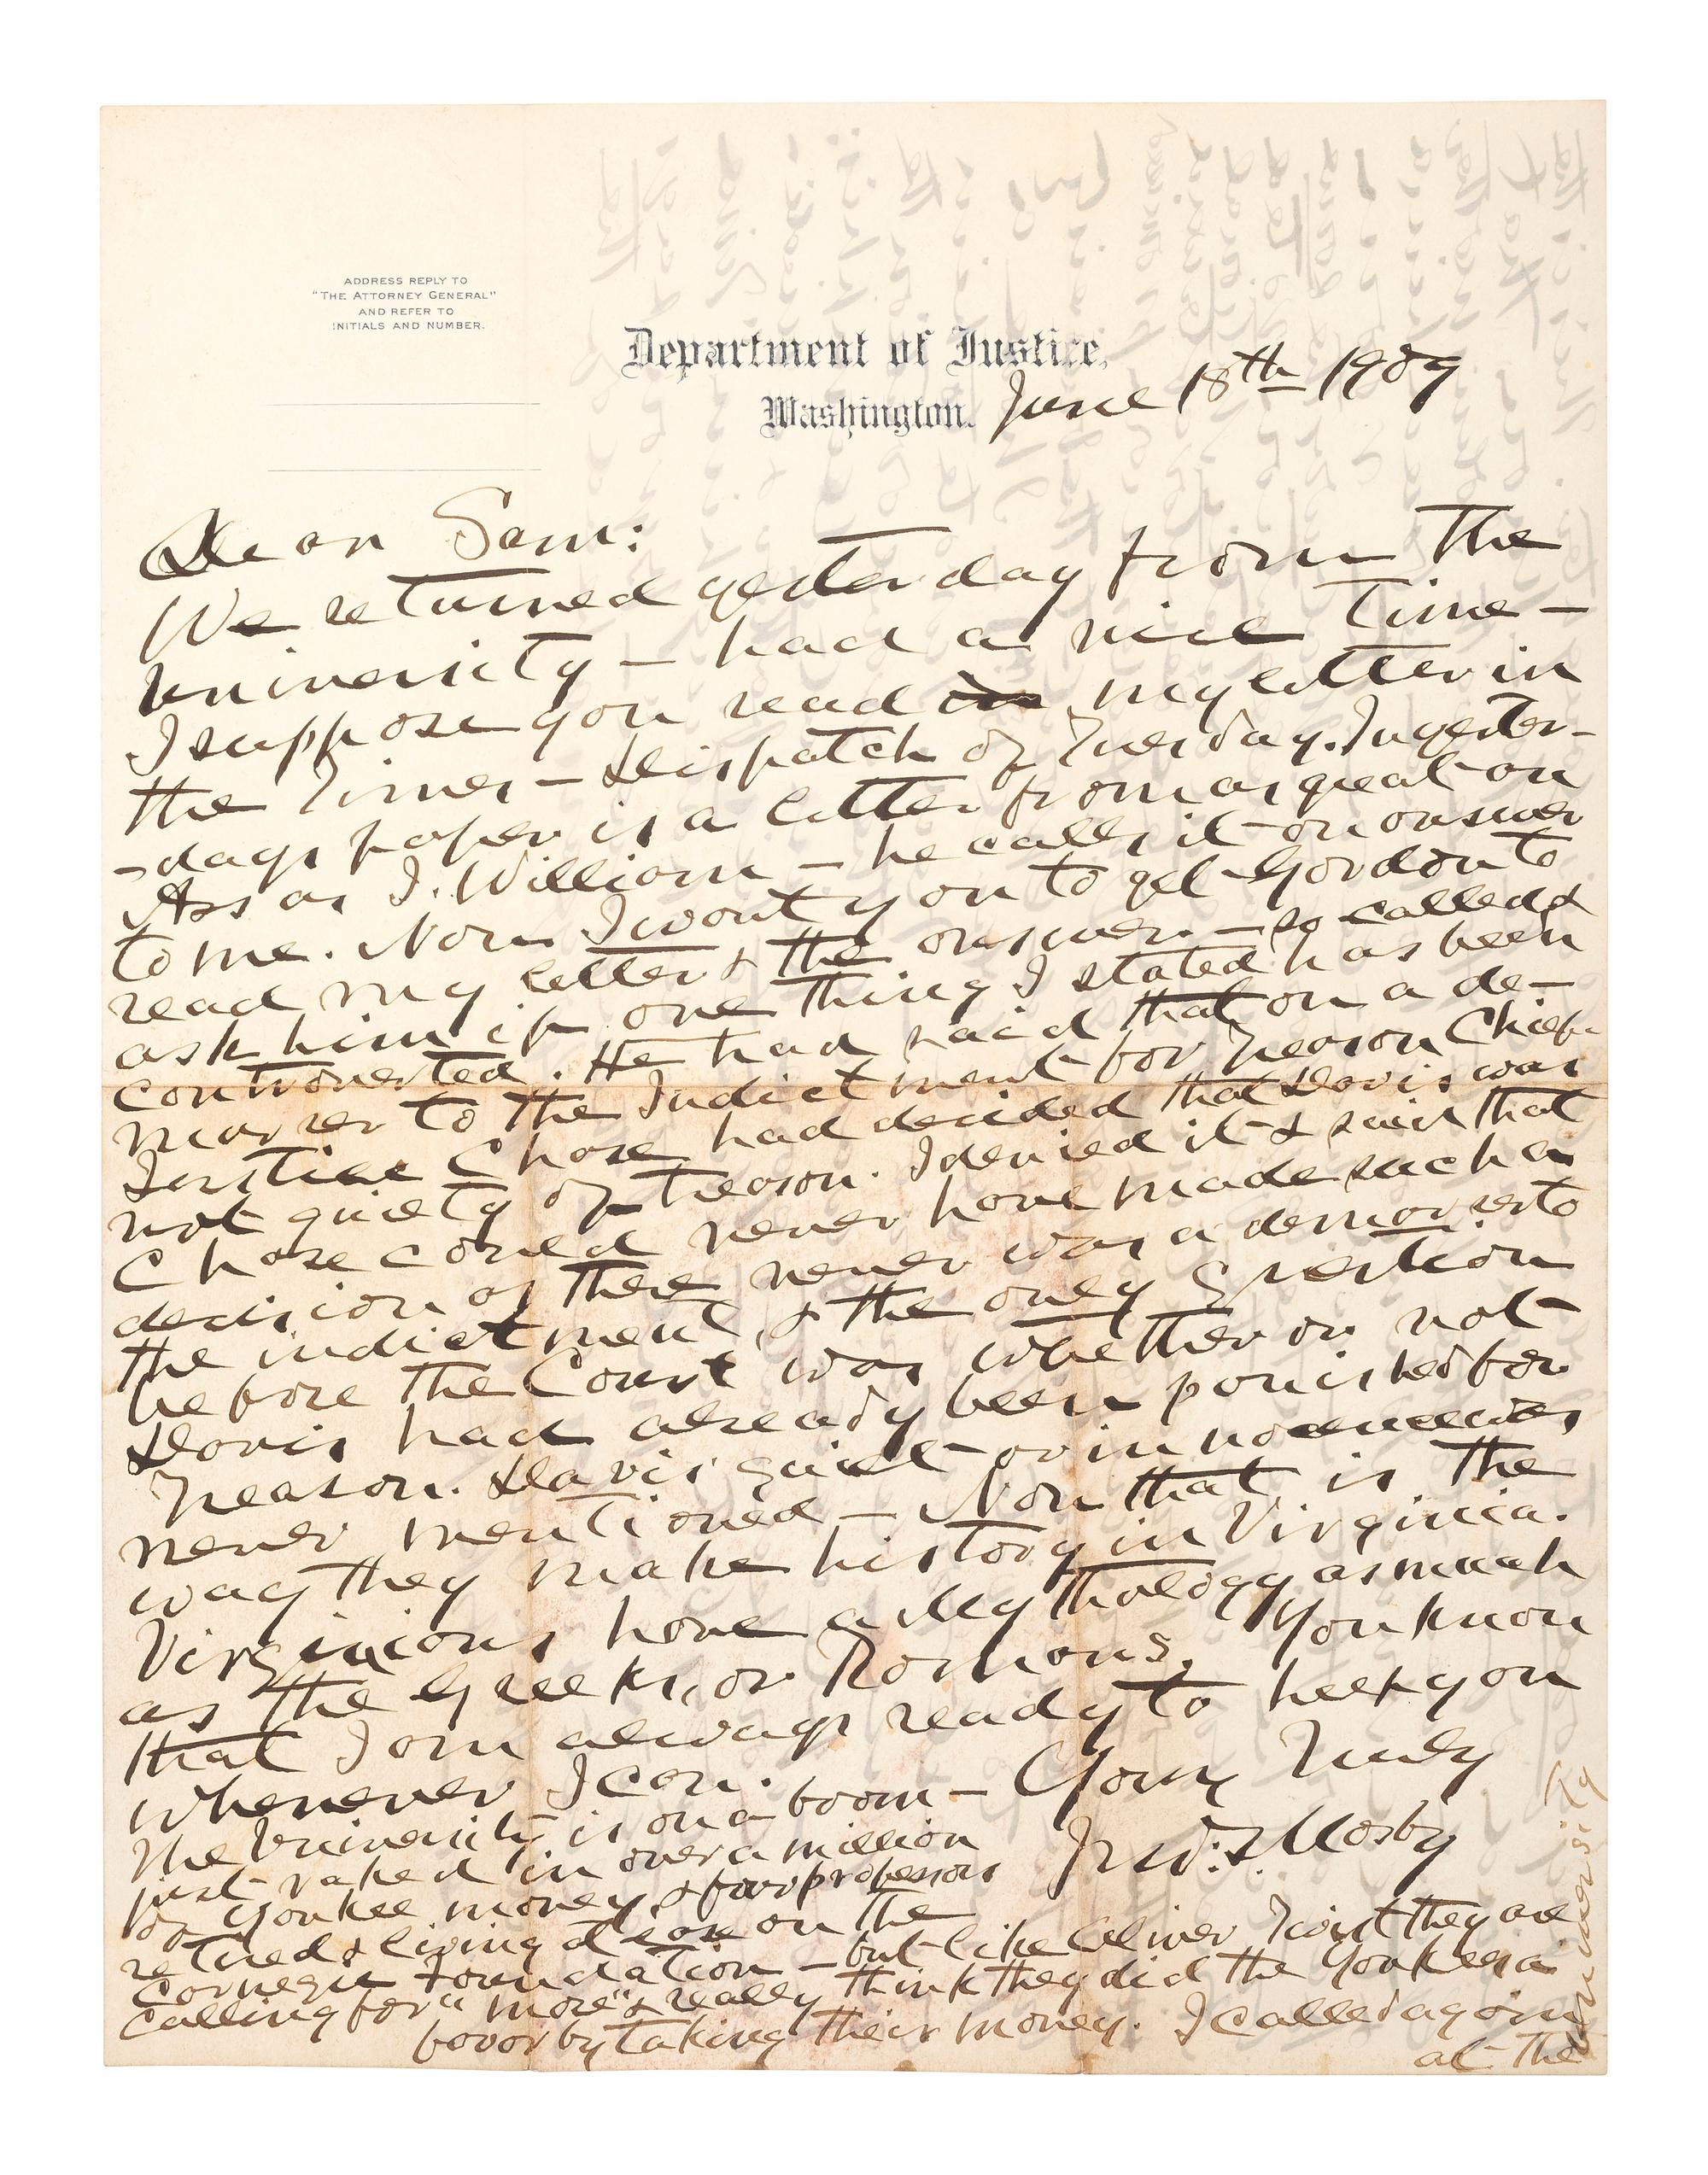 ADDRESS REPLY TO
"THE ATTORNEY GENERAL"
AND REFER TO
INITIALS AND NUMBER.
Department of Justice,
Washington. June 18th 1909
Dear Sam:
We returned yesterday from the
University – had a nice time –
I suppose you read in my letter in
the Times – Dispatch of Tuesday. In yester-
-days paper is a letter from as great an
Ass as J. William – he calls it an answer
to me. Now I want you to get Gordon to
read my letter & the answer – so called &
ask him if one thing I stated has been
controverted. He had said that on a de-
murrer to the Indictment for Treason Chief
Justice Chase had decided that Davis was
not guilty of treason. I denied it & said that
Chase could never have made such a
decision as there never was a demurrer to
the indictment, & the only Question
before the Court was whether or not
Davis had already been punished for
Treason. Davis' guilt or innocence was
never mentioned – Now that is the
way they make history in Virginia.
Virginians have a Mythology as much
as the Greeks, or Romans. You know
that I am always ready to help you
whenever I can.
Yours Truly
Jno. S. Mosby
The University is on a boom –
just raked in over a million
of Yankee money, & four professors
retired & living at ease on the
Carnegie Foundation – but like Oliver Twist they are
calling for "more" & really think they did the Yankees a
favor by taking their money. I called again
at the
University